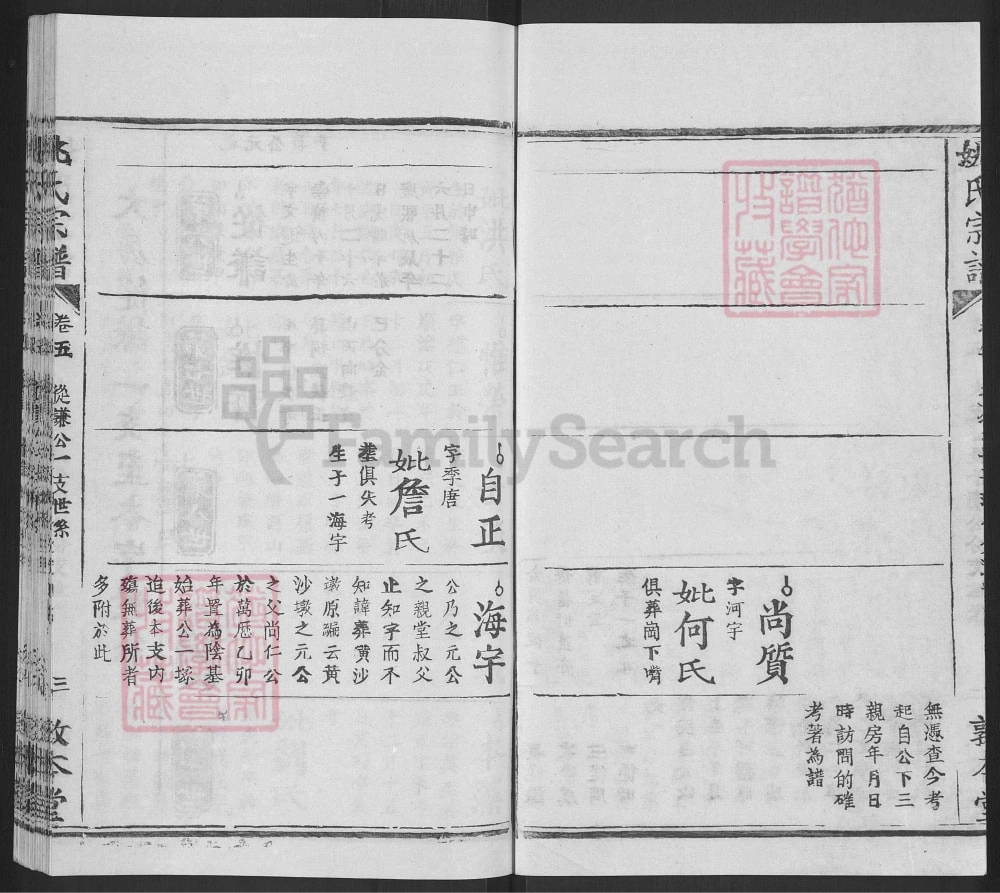 姚氏宗譜
猶他家
譜學會
收藏
尚質
字河宇
妣何氏
俱葬崗下嘴
無憑查今考
起自公下三
親房年月日
時訪問的確
考著為譜
自正
字季唐
妣詹氏
塟俱失考
生子一海宇
海宇
公乃之元公
之親堂叔父
止知字而不
知諱葬黄沙
墩原譜云黄
沙墩之元公
之父尚仁公
於萬歷乙卯
年置為陰基
始葬公一塚
迨後本支内
無葬所者
多附於此
氏宗譜
卷五
從謙公一支世系
三
敦本堂
FamilySearch